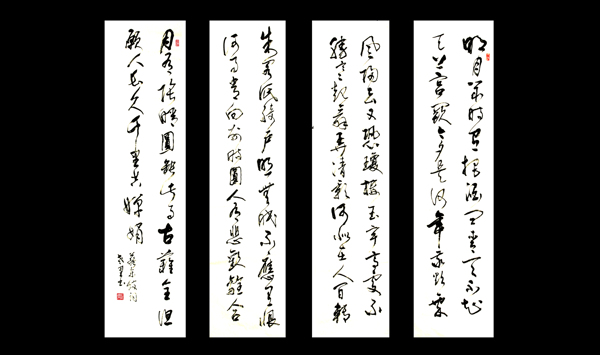 明月幾時有把酒問青天不知
天上宫闕今夕是何年我欲乘
風歸去又恐瓊樓玉宇高處不
勝寒起舞弄清影何似在人間轉
朱閣低綺户照無眠不應有恨
何事長向別時圓人有悲歡離合
月有陰晴圓缺此事古難全但
願人長久千里共嬋娟
蘇東坡詞